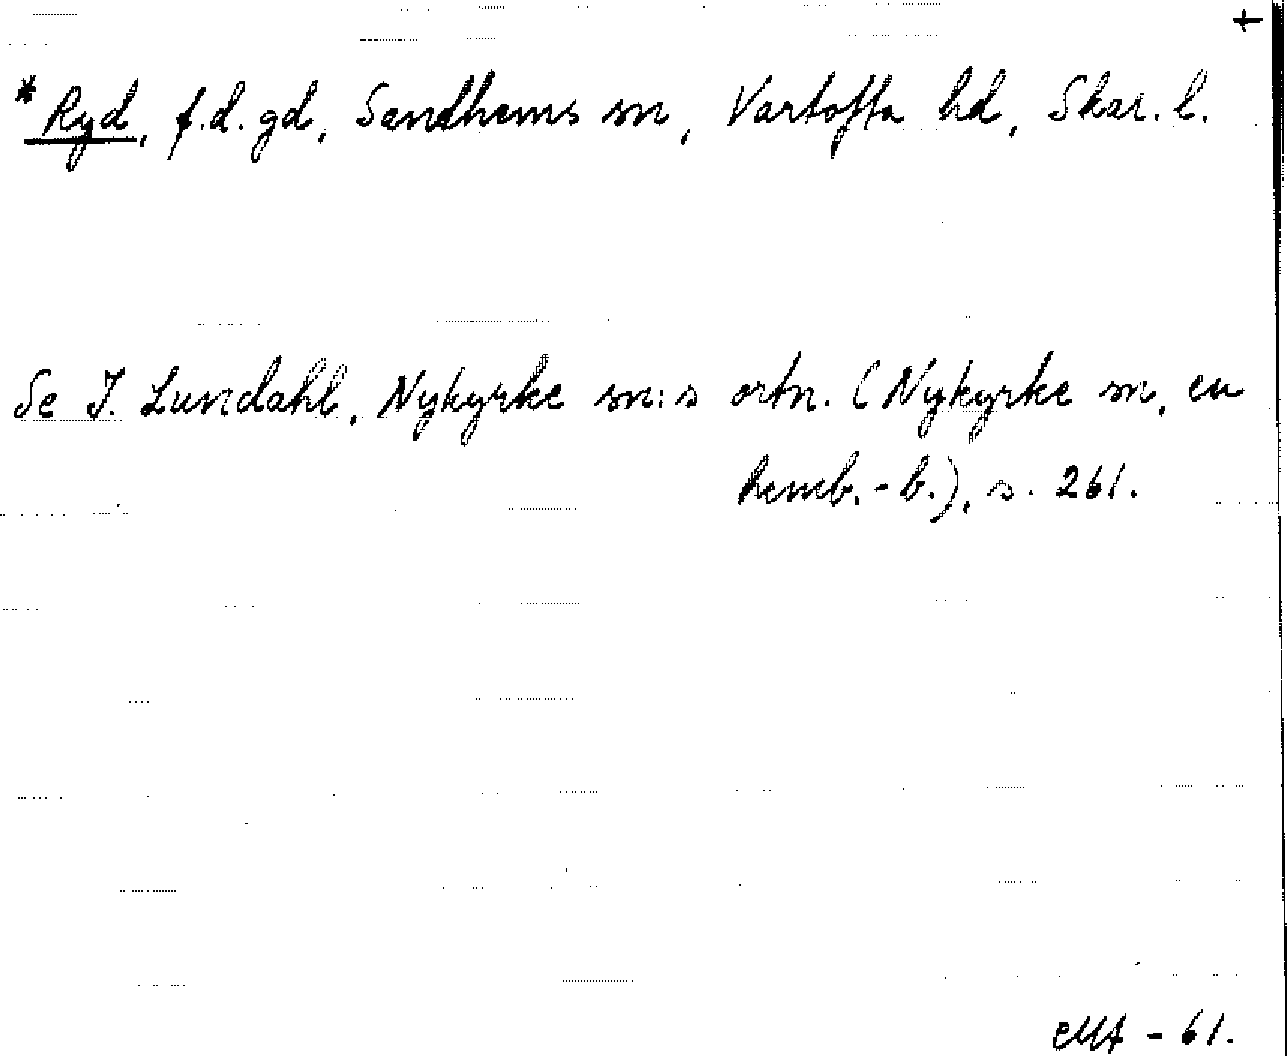 +
*Ryd, f.d. gd, Sandhems sn, Vartofta hd, Skar. l.
Se I. Lundahl, Nykyrke sn:s ortn. (Nykyrke sn, en
hemb.-b.), s. 261.
- 61.